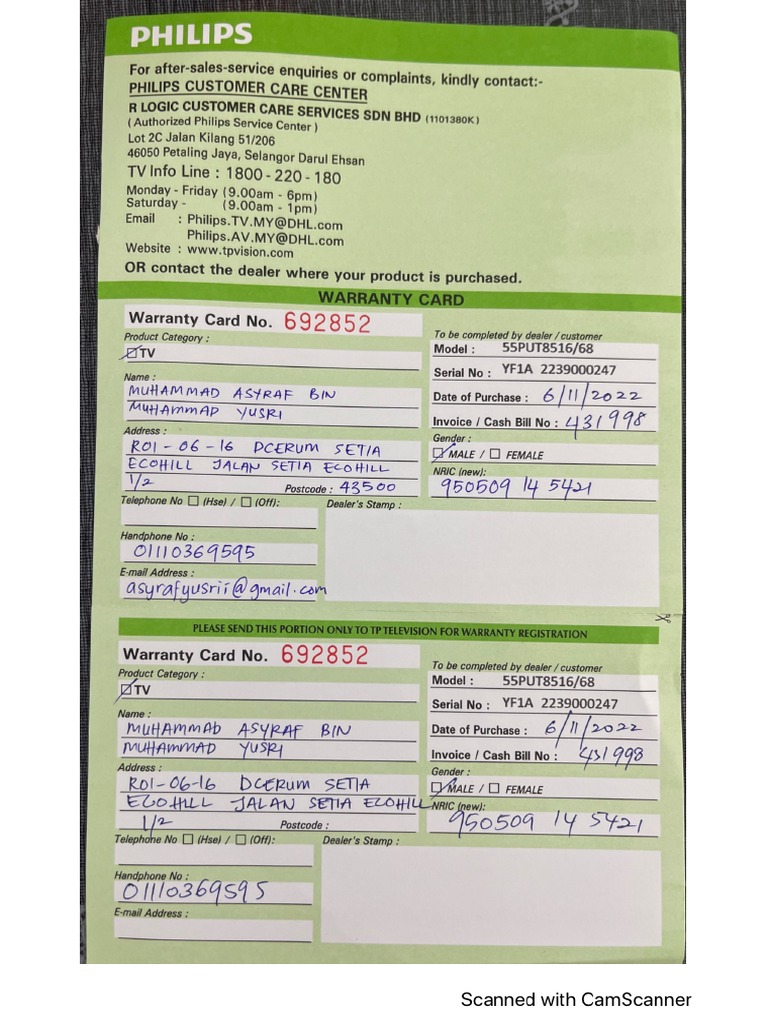 PHILIPS
For after-sales-service enquiries or complaints, kindly contact:-
PHILIPS CUSTOMER CARE CENTER
R LOGIC CUSTOMER CARE SERVICES SDN BHD (1101380K)
( Authorized Philips Service Center )
Lot 2C Jalan Kilang 51/206
46050 Petaling Jaya, Selangor Darul Ehsan
TV Info Line : 1800 - 220 - 180
Monday - Friday (9.00am - 6pm)
Saturday - (9.00am - 1pm)
Email : Philips.TV.MY@DHL.com
Philips.AV.MY@DHL.com
Website : www.tpvision.com
OR contact the dealer where your product is purchased.
WARRANTY CARD
Warranty Card No. 692852
Product Category :
TV
Name :
MUHAMMAD ASYRAF BIN
MUHAMMAD YUSRI
Address :
R01-06-16 DCERUM SETIA
ECOHILL JALAN SETIA ECOHILL
1/2 Postcode : 43500
Telephone No (Hse) / (Off):
Handphone No :
01110369595
E-mail Address :
asyrafyusrii@gmail.com
To be completed by dealer / customer
Model : 55PUT8516/68
Serial No : YF1A 2239000247
Date of Purchase : 6/11/2022
Invoice / Cash Bill No : 431998
Gender :
MALE / FEMALE
NRIC (new):
950509 14 5421
Dealer's Stamp :
PLEASE SEND THIS PORTION ONLY TO TP TELEVISION FOR WARRANTY REGISTRATION
Warranty Card No. 692852
Product Category :
TV
Name :
MUHAMMAD ASYRAF BIN
MUHAMMAD YUSRI
Address :
R01-06-16 DCERUM SETIA
ECOHILL JALAN SETIA ECOHILL
1/2 Postcode :
Telephone No (Hse) / (Off):
Handphone No :
01110369595
E-mail Address :
To be completed by dealer / customer
Model : 55PUT8516/68
Serial No : YF1A 2239000247
Date of Purchase : 6/11/2022
Invoice / Cash Bill No : 431998
Gender :
MALE / FEMALE
NRIC (new):
950509 14 5421
Dealer's Stamp :
Scanned with CamScanner